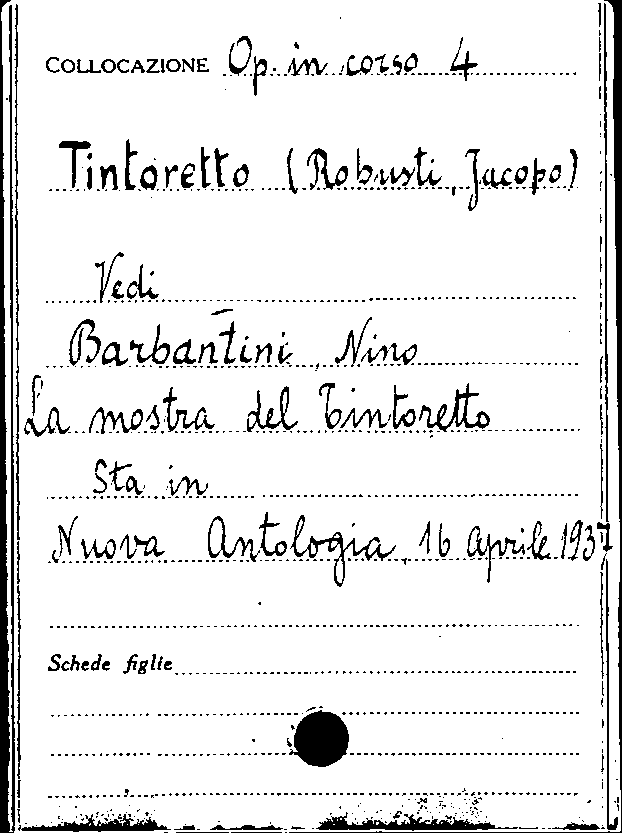 COLLOCAZIONE Op. in corso 4
Tintoretto (Robusti, Jacopo)
Vedi
Barbantini, Nino
La mostra del Tintoretto
Sta in
Nuova Antologia, 16 Aprile 1937
Schede figlie